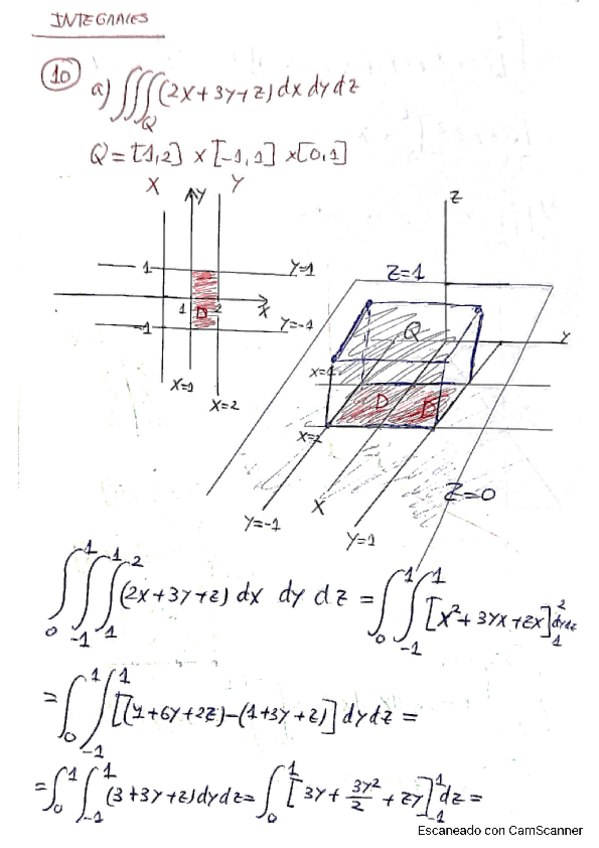 INTEGRALES
10 a) ∭_Q (2x+3y+z) dx dy dz
Q = [1,2] x [-1,1] x [0,1]
X Y
Y
1
Y=1
1 D 2 X
-1
Y=-1
X=1
X=2
Z
Z=1
Q
Y
X=1
D
X=2
Z=0
Y=-1
X
Y=1
∫_0^1 ∫_{-1}^1 ∫_1^2 (2x+3y+z) dx dy dz = ∫_0^1 ∫_{-1}^1 [x²+3yx+zx]_1^2 dydz
= ∫_0^1 ∫_{-1}^1 [(4+6y+2z)-(1+3y+z)] dydz =
= ∫_0^1 ∫_{-1}^1 (3+3y+z) dydz = ∫_0^1 [3y + 3y²/2 + zy]_{-1}^1 dz =
Escaneado con CamScanner